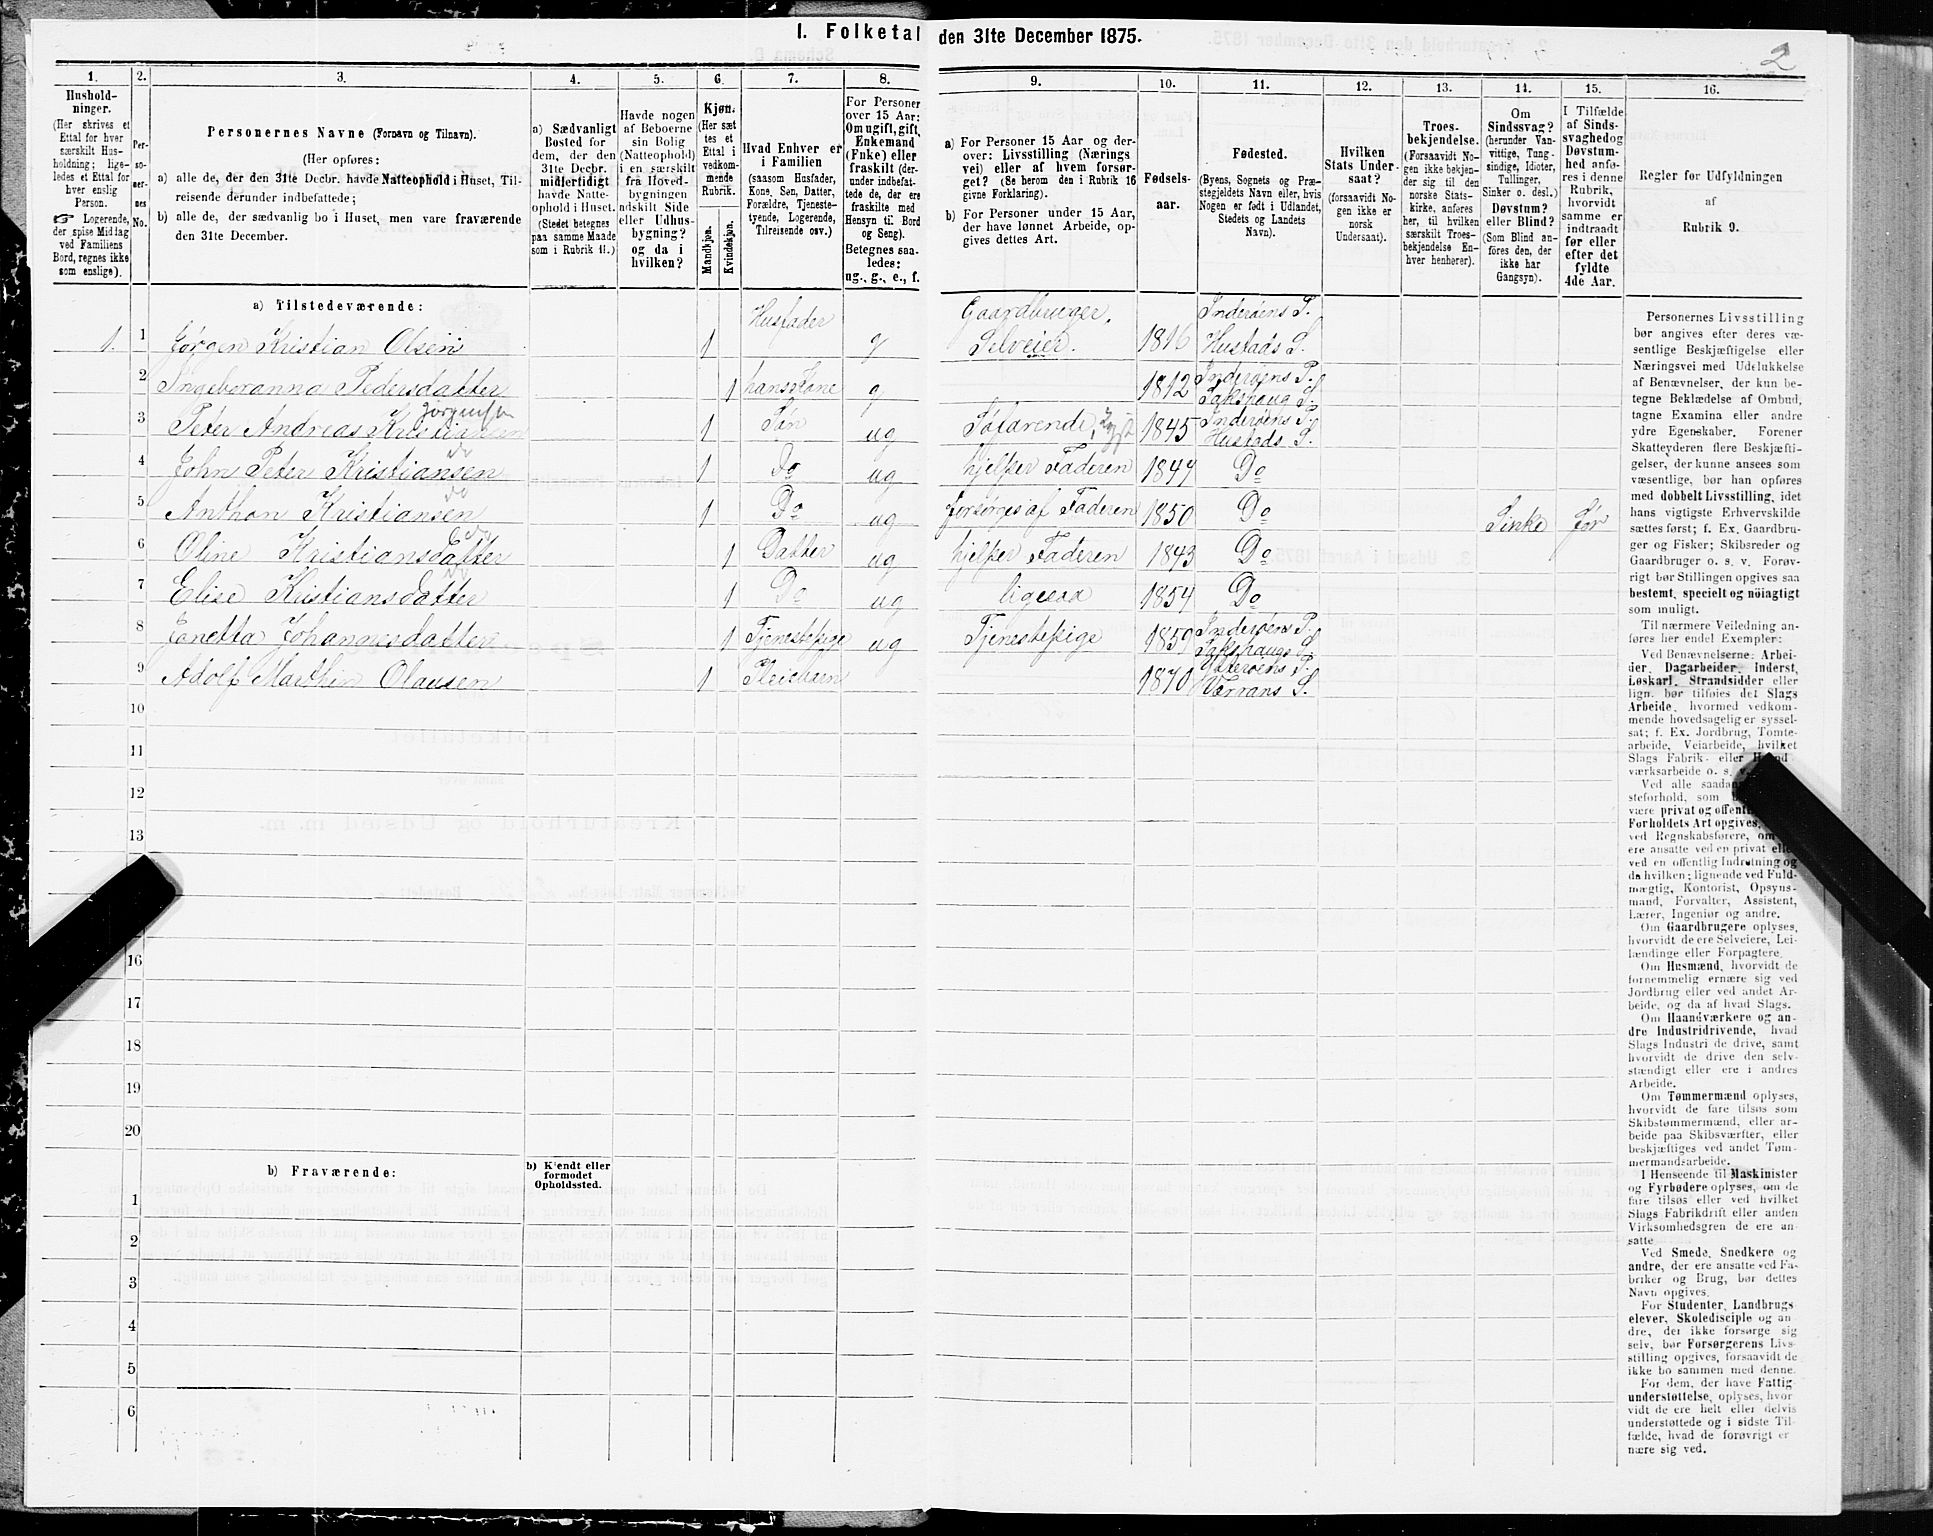 I. Folketal den 31te December 1875.
2
1.
Husholdninger.
(Her skrives et
Ettal for hver
særskilt Husholdning; ligeledes et Ettal for
hver enslig
Person.
☞ Logerende,
der spise Middag
ved Familiens
Bord, regnes ikke
som enslige).
2.
Personernes
No.
3.
Personernes Navne (Fornavn og Tilnavn).
(Her opføres:
a) alle de, der den 31te Decbr. havde Natteophold i Huset, Tilreisende derunder indbefattede;
b) alle de, der sædvanlig bo i Huset, men vare fraværende
den 31te December.
4.
a) Sædvanligt
Bosted for
dem, der den
31te Decbr.
midlertidigt
havde Natteophold i Huset.
(Stedet betegnes
paa samme Maade
som i Rubrik 11.)
5.
Havde nogen
af Beboerne
sin Bolig
(Natteophold)
i en særskilt
fra Hovedbygningen
adskilt Side
eller Udhusbygning?
og da i
hvilken?
6.
Kjøn.
(Her sæt
tes et
Ettal i
vedkommende
Rubrik.
Mandkjøn.
Kvindekjøn.
7.
Hvad Enhver er
i Familien
(saasom Husfader,
Kone, Søn, Datter,
Forældre, Tjenestetyende, Logerende,
Tilreisende osv.)
8.
For Personer
over 15 Aar:
Om ugift, gift,
Enkemand
(Enke) eller
fraskilt (derunder indbefattede de, der ere
fraskilte med
Hensyn til Bord
og Seng).
Betegnes saaledes:
ug., g., e., f.
9.
a) For Personer 15 Aar og derover: Livsstilling (Nærings
vei) eller af hvem forsørget? (Se herom den i Rubrik 16
givne Forklaring).
b) For Personer under 15 Aar,
der have lønnet Arbeide, opgives dettes Art.
10.
Fødselsaar.
11.
Fødested.
(Byens, Sognets og Præstegjeldets Navn eller, hvis
Nogen er født i Udlandet,
Stedets og Landets
Navn).
12.
Hvilken
Stats Undersaat?
(forsaavidt Nogen ikke er
norsk
Undersaat).
13.
Troesbekjendelse.
(Forsaavidt Nogen ikke bekjender sig til den
norske Statskirke, anføres
her, til hvilken
særskilt Troesbekjendelse Enhver henhører).
14.
Om
Sindssvag?
(herunder Vanvittige, Tungsindige, Idioter,
Tullinger,
Sinker o. desl.)
Døvstum?
eller Blind?
(Som Blind anføres den, der
ikke har
Gangsyn).
15.
I Tilfælde
af Sindssvaghed og
Døvstumhed anføres i denne
Rubrik,
hvorvidt
samme er
indtraadt
før eller
efter det
fyldte
4de Aar.
16.
Regler for Udfyldning
af
Rubrik 9.
a) Tilstedeværende:
1. 1 Jørgen Kristian Olsen 1 Husfader g Gaardbruger, Selveier. 1816 Inderøens P. Hustads S.
2 Ingeboranna Pedersdatter 1 hans Kone g 1812 Inderøens P. Sakshaug S.
3 Peter Andreas Kristiansen Jørgensen 1 Søn ug Søfarende, 1845 Inderøens P. Hustads S.
4 John Peter Kristiansen do 1 Do ug hjelper Faderen 1847 Do
5 Anthon Kristiansen do 1 Do ug forsørges af Faderen 1850 Do Sinke før
6 Oline Kristiansdatter 1 Datter ug hjelper Faderen 1843 Do
7 Elise Kristiansdatter do 1 Do ug ligesaa 1854 Do
8 Janetta Johannesdatter 1 Tjenestepige ug Tjenestepige 1859 Inderøens P. Sakshaugs S
9 Adolf Marthin Olausen 1 Pleiebarn 1870 Ytterøens P. Værrans S.
10
11
12
13
16
17
18
19
20
b) Fraværende:
b) Kjendt eller
formodet
Opholdssted.
1
2
3
4
5
6
Personernes Livsstilling
bør angives efter deres væsentlige Beskjæftigelse eller
Næringsvei med Udelukkelse
af Benævnelser, der kun betegne Beklædelse af Ombud,
tagne Examina eller andre
ydre Egenskaber. Forener
Skatteyderen flere Beskjæftigelser, der kunne ansees som
væsentlige, bør han opføres
med dobbelt Livsstilling, idet
hans vigtigste Erhvervskilde
sættes først; f. Ex. Gaardbruger og Fisker; Skibsreder og
Gaardbruger o. s. v. Forøvrigt bør Stillingen opgives saa
bestemt, specielt og nöiagtigt
som muligt.
Til nærmere Veiledning anføres her endel Exempler:
Ved Benævnelserne: Arbeider, Dagarbeider, Inderst,
Løskarl, Strandsidder eller
lign. bør tilføies det Slags
Arbeide, hvormed vedkommende hovedsagelig er sysselsat; f. Ex. Jordbrug, Tomtearbeide, Veiarbeide, hvilket
Slags Fabrik- eller Haandværksarbeide o. s. v.
Ved alle saadanne
være privat og offentl
Forholdets Art opgives,
ved Regnskabsførere, om
ere ansatte ved en privat eller
ved en offentlig Indretning og
da hvilken; lignende ved Fuldmægtig, Kontorist, Opsynsmand, Forvalter, Assistent,
Lærer, Ingeniør og andre.
Om Gaardbrugere oplyses,
hvorvidt de ere Selveiere, Leilændinge eller Forpagtere.
Om Husmænd, hvorvidt de
fornemmelig ernære sig ved
Jordbrug eller ved andet Arbeide, og da af hvad Slags.
Om Haandværkere og andre Industridrivende, hvad
Slags Industri de drive, samt
hvorvidt de drive den selvstændigt eller ere i andres
Arbeide.
Om Tømmermænd oplyses,
hvorvidt de fare tilsøs som
Skibstømmermænd, eller arbeide paa Skibsværfter, eller
beskjæftiges ved andet Tømmermandsarbeide.
I Henseende til Maskinister
og Fyrbødere oplyses, om de
fare tilsøs eller ved hvilket
Slags Fabrikdrift eller anden
Virksomhedsgren de ere ansatte
Ved Smede, Snedkere og
andre, der ere ansatte ved Fabriker og Brug, bør dettes
Navn opgives.
For Studenter, Landbrugselever, Skoledisciple og andre, der ikke forsørge sig
selv, bør Forsørgerens Livsstilling opgives, forsaavidt de
ikke bo sammen med denne.
For dem, der have Fattigunderstøttelse, oplyses, hvorvidt de ere helt eller delvis
understøttede og i sidste Tilfælde, hvad de forøvrigt ernære sig ved.